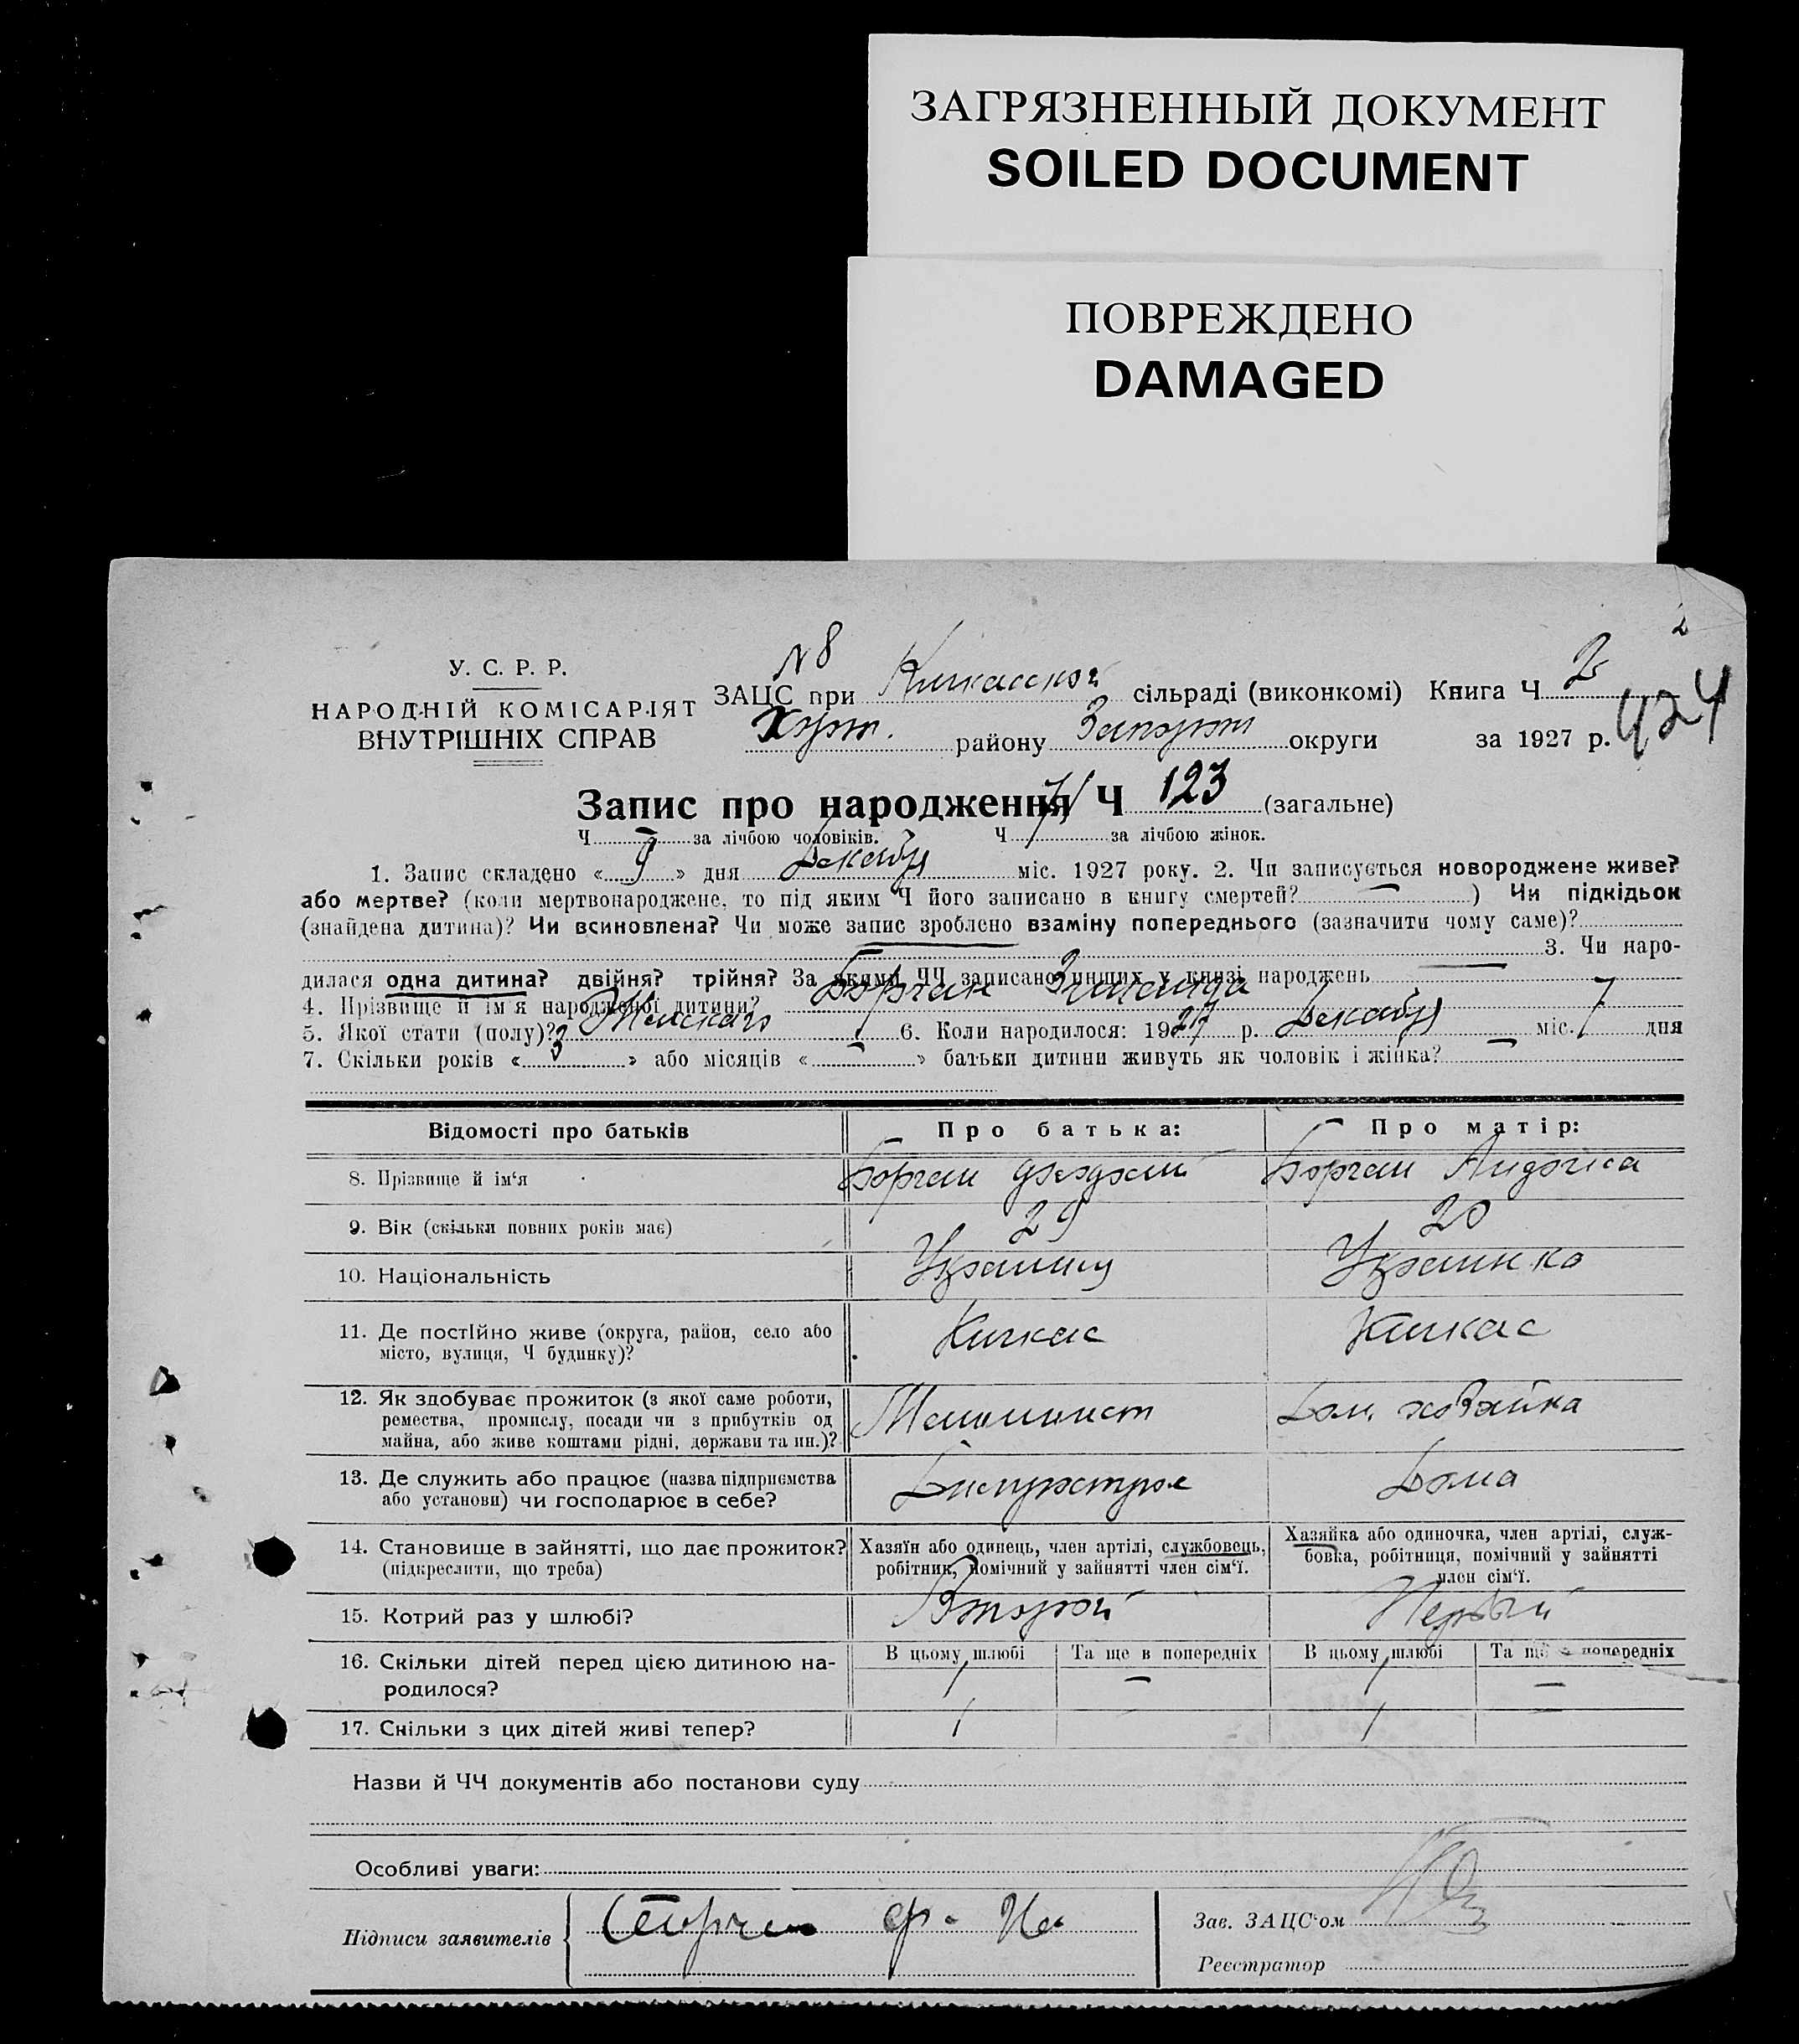 ЗАГРЯЗНЕННЫЙ ДОКУМЕНТ
SOILED DOCUMENT
ПОВРЕЖДЕНО
DAMAGED
2
У. С. Р. Р.
НАРОДНІЙ КОМІСАРІЯТ
ВНУТРІШНІХ СПРАВ
N 8
ЗАЦС при Кичкасской сільраді (виконкомі) Книга Ч 2
Хорт. району Запорож округи за 1927 р. 424
Запис про народження Ч 123 (загальне)
Ч — за лічбою чоловіків. Ч 71 за лічбою жінок.
1. Запис складено « 9 » дня Декабря міс. 1927 року. 2. Чи записується новороджене живе?
або мертве? (коли мертвонароджене, то під яким Ч його записано в книгу смертей? — ) Чи підкідьок
(знайдена дитина)? Чи всиновлена? Чи може запис зроблено взаміну попереднього (зазначити чому саме)?
3. Чи наро-
дилася одна дитина? двійня? трійня? За якими ЧЧ записано инших у книзі народжень —
4. Прізвище й ім'я народженої дитини? Борчан Зинаида
5. Якої стати (полу)? Женскаго 6. Коли народилося: 1927 р. Декабря міс. 7 дня
7. Скільки років « 3 » або місяців « — » батьки дитини живуть як чоловік і жінка? —
Відомості про батьків Про батька: Про матір:
8. Прізвище й ім'я Борчан Борчан
9. Вік (скільки повних років має) 29 20
10. Національність Украинец Украинка
11. Де постійно живе (округа, район, село або місто, вулиця, Ч будинку)? Кичкас Кичкас
12. Як здобуває прожиток (з якої саме роботи,
ремества, промислу, посади чи з прибутків од
майна, або живе коштами рідні, держави та ин.)? Дом. хозяйка
13. Де служить або працює (назва підприємства
або установи) чи господарює в себе? Днепрострое Дома
14. Становище в зайнятті, що дає прожиток?
(підкреслити, що треба)
Хазяїн або одинець, член артілі, службовець,
робітник, помічний у зайнятті член сім'ї.
Хазяйка або одиночка, член артілі, служ-
бовка, робітниця, помічний у зайнятті
член сім'ї.
15. Котрий раз у шлюбі? Второй Первый
16. Скільки дітей перед цією дитиною на-
родилося?
В цьому шлюбі Та ще в попередніх В цьому шлюбі Та ще в попередніх
1 — 1 —
17. Скільки з цих дітей живі тепер? 1 — 1 —
Назви й ЧЧ документів або постанови суду
Особливі уваги:
Підписи заявителів
Зав. ЗАЦС'ом
Реєстратор